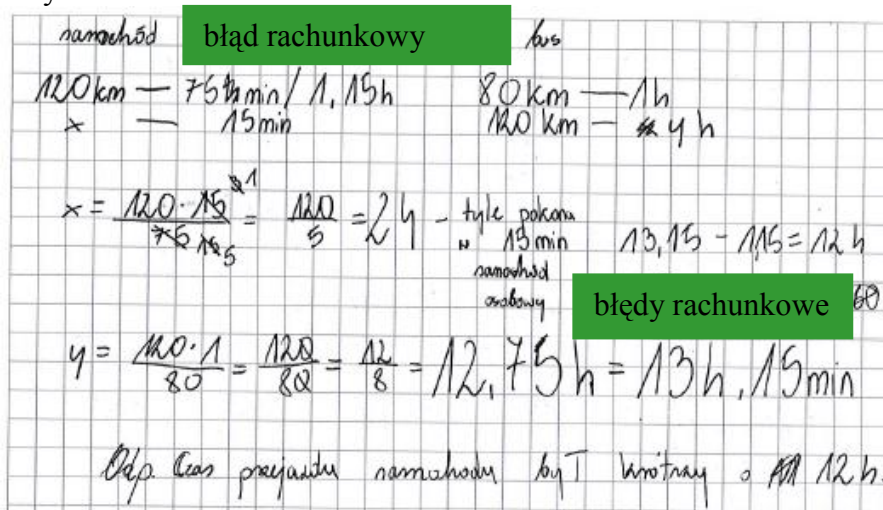 samochód błąd rachunkowy bus
120 km — 75 min / 1,15h 80 km — 1h
x — 15 min 120 km — y h
x = 120·15 / 75 = 120 / 5 = 24 - tyle pokona
w 15 min 13,15 - 1,15 = 12 h
samochód
osobowy błędy rachunkowe 60
y = 120·1 / 80 = 120 / 80 = 12 / 8 = 12,75 h = 13h, 15min
Odp. Czas przejazdu samochodu był krótszy o 12 h.